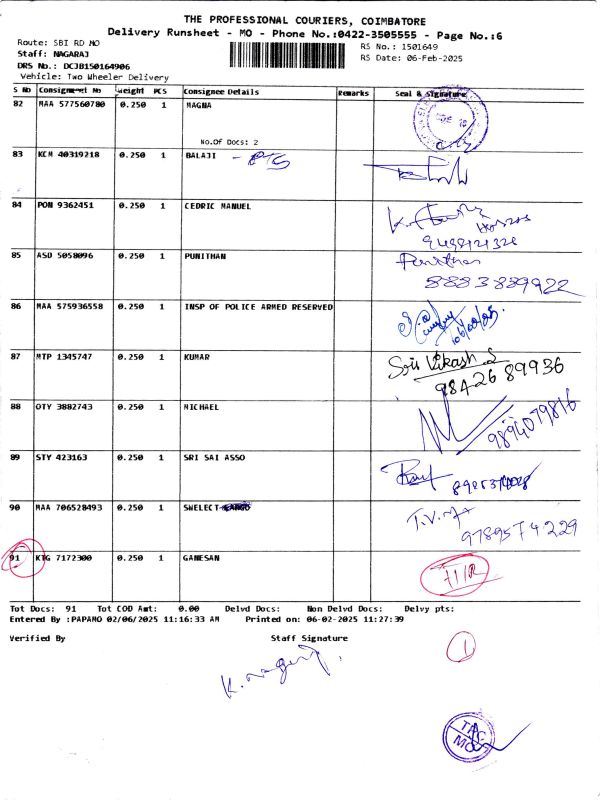 THE PROFESSIONAL COURIERS, COIMBATORE
Delivery Runsheet - MO - Phone No.:0422-3505555 - Page No.:6
Route: SBI RD MO
RS No.: 1501649
Staff: NAGARAJ
RS Date: 06-Feb-2025
DRS No.: DCJB150164906
Vehicle: Two Wheeler Delivery
S No Consignment No Weight PCS Consignee Details Remarks Seal & Signature
82 MAA 577560780 0.250 1 MAGNA
No.Of Docs: 2
83 KCM 40319218 0.250 1 BALAJI
84 PON 9362451 0.250 1 CEDRIC MANUEL
85 ASD 5058096 0.250 1 PUNITHAN Punithan
8883889922
86 MAA 575936558 0.250 1 INSP OF POLICE ARMED RESERVED
87 MTP 1345747 0.250 1 KUMAR Sri Vikash S
98426 89936
88 OTY 3882743 0.250 1 MICHAEL 9894079816
89 STY 423163 0.250 1 SRI SAI ASSO
90 MAA 706528493 0.250 1 SWELECT
9789574229
91 KTG 7172300 0.250 1 GANESAN
Tot Docs: 91 Tot COD Amt: 0.00 Delvd Docs: Non Delvd Docs: Delvy pts:
Entered By :PAPAMO 02/06/2025 11:16:33 AM Printed on: 06-02-2025 11:27:39
Verified By Staff Signature
1
K. Nagaraj